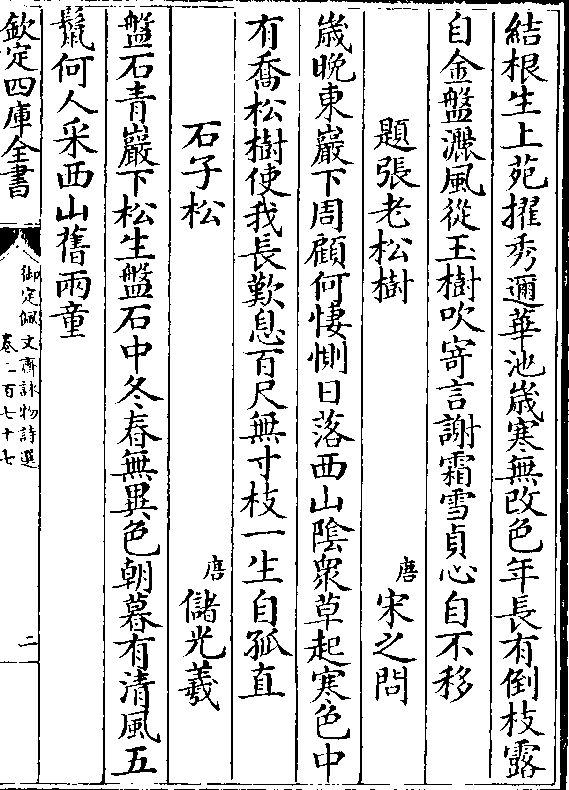 結根生上苑擢秀邇華池歲寒無改色年長有倒枝露
自金盤灑風從玉樹吹寄言謝霜雪貞心自不移
題張老松樹 唐 宋之問
歲晚東巖下周顧何悽惻日落西山陰衆草起寒色中
有喬松樹使我長歎息百尺無寸枝一生自孤直
石子松 唐 儲光羲
盤石青巖下松生盤石中冬春無異色朝暮有清風五
鬛何人采西山舊兩童
欽定四庫全書
御定佩文齋詠物詩選
卷二百七十七
二